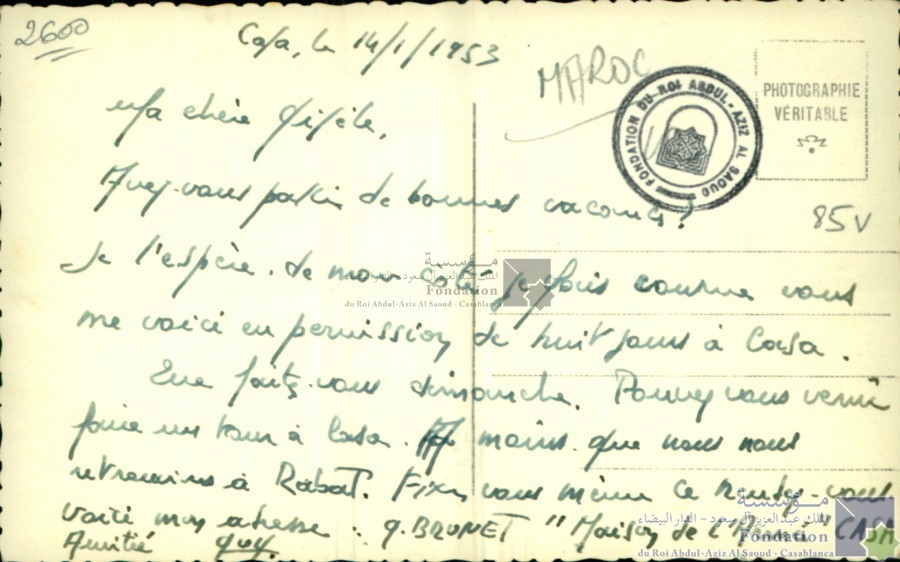 2600
Casa, le 14/1/1953
MAROC
FONDATION DU ROI ABDUL-AZIZ AL SAOUD
PHOTOGRAPHIE
VÉRITABLE
85V
Ma chère Gisèle,
Avez-vous passé de bonnes vacances?
Je l'espère. de mon côté je fais comme vous
me voici en permission de huit jours à Casa.
Que faites-vous dimanche. Pouvez vous venir
faire un tour à Casa. A moins que nous nous
retrouvions à Rabat. Fixez vous même ce rendez-vous
voici mon adresse. G. BRUNET "Maison de l'Armée" CASA
Amitié Guy.
مؤسسة
الملك عبد العزيز آل سعود - الدار البيضاء
Fondation
du Roi Abdul-Aziz Al Saoud - Casablanca
مؤسسة
الملك عبد العزيز آل سعود - الدار البيضاء
Fondation
du Roi Abdul-Aziz Al Saoud - Casablanca